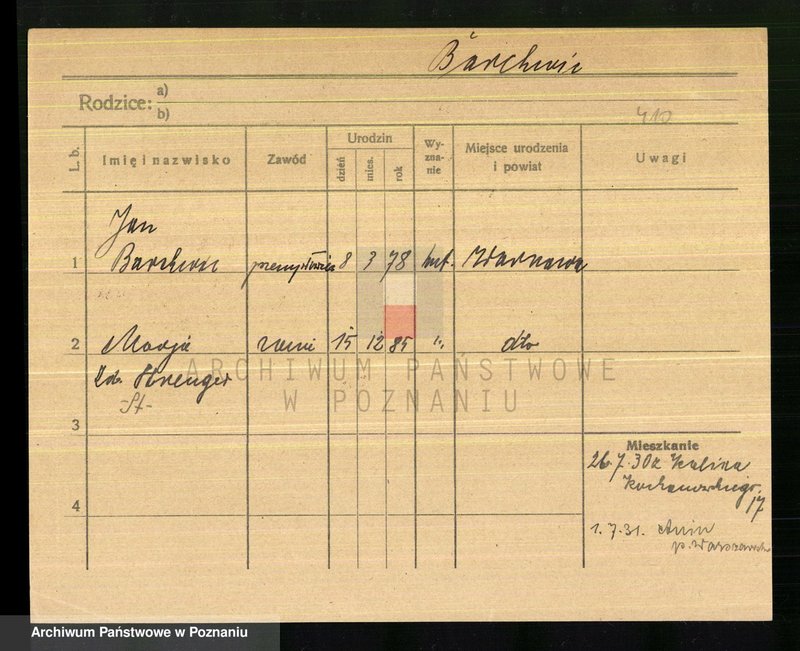 Barchwic
Rodzice: a)
b)
410
L. b. Imię i nazwisko Zawód Urodzin Wy-zna-nie Miejsce urodzenia i powiat Uwagi
dzień mies. rok
Jan
1 Barchwic przemysłowiec 8 3 78 kat. Warszawa
2 Marja żona 15 12 85 „ dto
-St-
ARCHIWUM PAŃSTWOWE
W POZNANIU
3
Mieszkanie
26.7.30 z
17
4
1.7.31. Anin
p. Warszawą
Archiwum Państwowe w Poznaniu